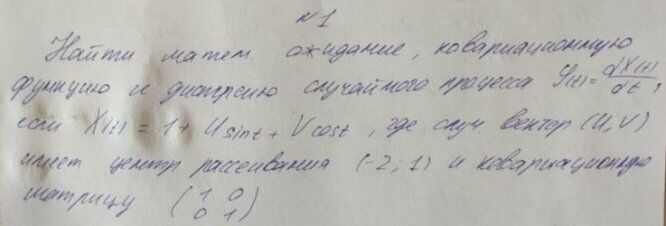 №1
Найти матем ожидание, ковариационную
функцию и дисперсию случайного процесса Y(t) = dX(t)/dt,
если X(t) = 1 + U sin t + V cos t, где случ. вектор (U, V)
имеет центр рассеивания (-2; 1) и ковариационную
матрицу (1 0
0 1)